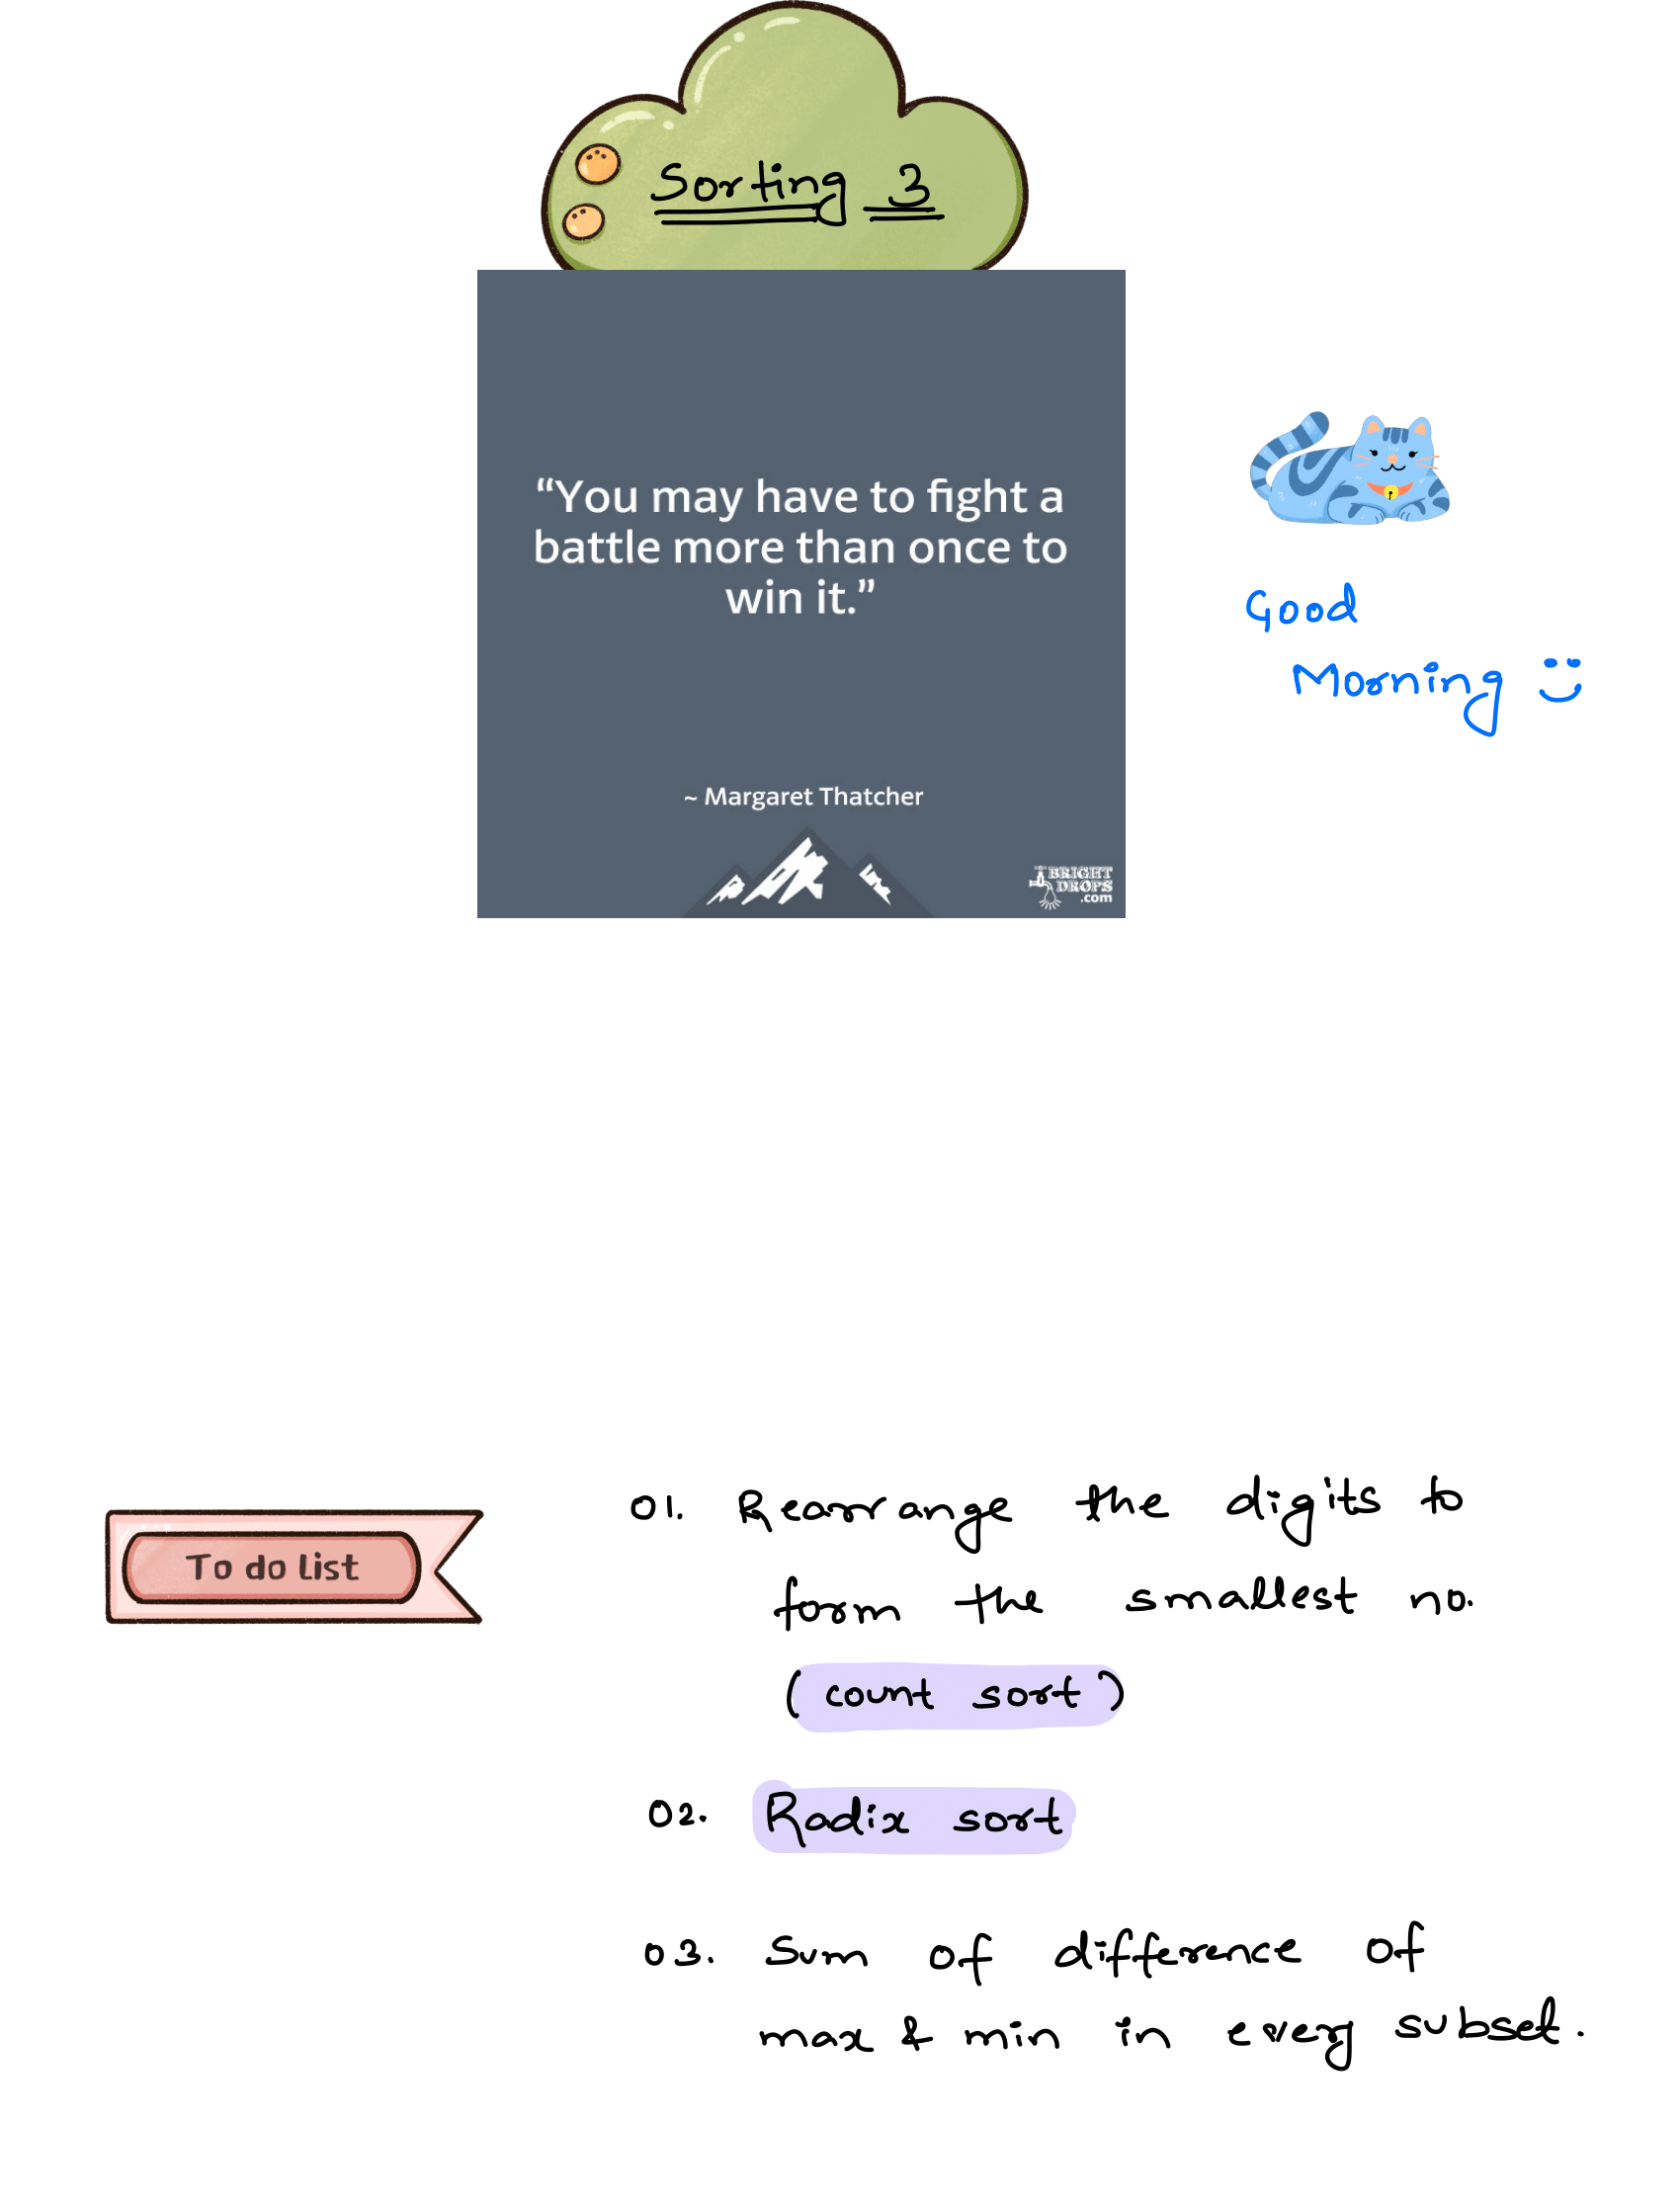 Sorting 3
“You may have to fight a
battle more than once to
win it.”
~ Margaret Thatcher
BRIGHT
DROPS
.com
Good
Morning
To do list
01. Rearrange the digits to
form the smallest no.
(count sort)
02. Radix sort
03. Sum of difference of
max & min in every subset.